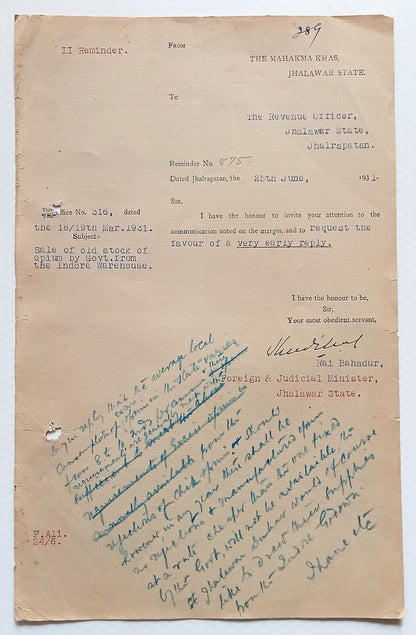 289
II Reminder.
FROM
THE MAHAKMA KHAS,
JHALAWAR STATE.
To
The Revenue Officer,
Jhalawar State,
Jhalrapatan.
Reminder No. 875.
Dated Jhalrapatan, the 25th June, 1931.
SIR,
This office No. 316, dated
the 18/19th Mar.1931.
Subject:-
Sale of old stock of
opium by Govt.from
the Indore Warehouse.
I have the honour to invite your attention to the
communication noted on the margin, and to request the
favour of a very early reply.
I have the honour to be,
Sir,
Your most obedient servant,
Rai Bahadur,
Foreign & Judicial Minister,
Jhalawar State.
F.Ali.
24/6.
Say in reply that the average local
consumption of opium in the State varies
from
requirements of Excise opium
are mostly available from the
rejections of chik opium & should
however in any year there shall be
no rejections & manufactured opium
at a rate cheaper than the one fixed
by the Govt. will not be available the
Jhalawar Durbar would of course
like to draw their supplies
from the Indore Godown.
I have etc